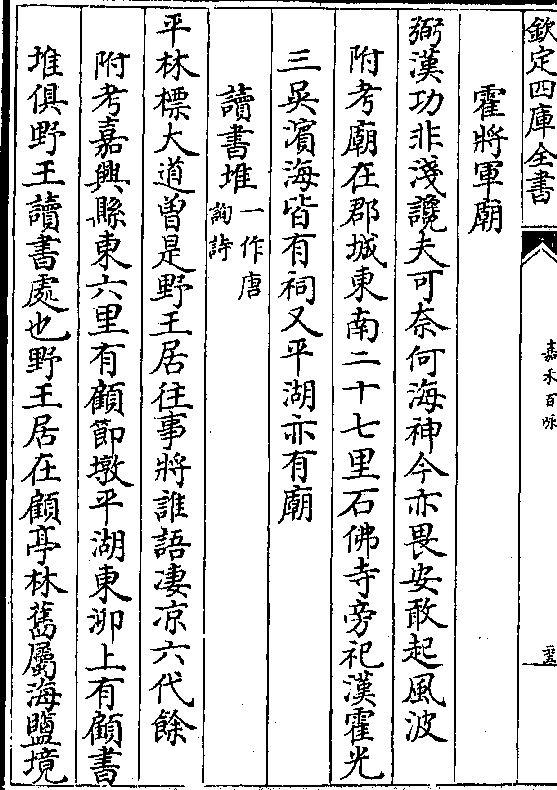 欽定四庫全書
嘉禾百咏
霍將軍廟
弼漢功非淺讒夫可奈何海神今亦畏安敢起風波
附考廟在郡城東南二十七里石佛寺旁祀漢霍光
三吳濱海皆有祠又平湖亦有廟
讀書堆一作唐
詢詩
平林標大道曽是野王居往事將誰語凄凉六代餘
附考嘉興縣東六里有顧節墩平湖東泖上有顧書
堆俱野王讀書處也野王居在顧亭林舊屬海鹽境